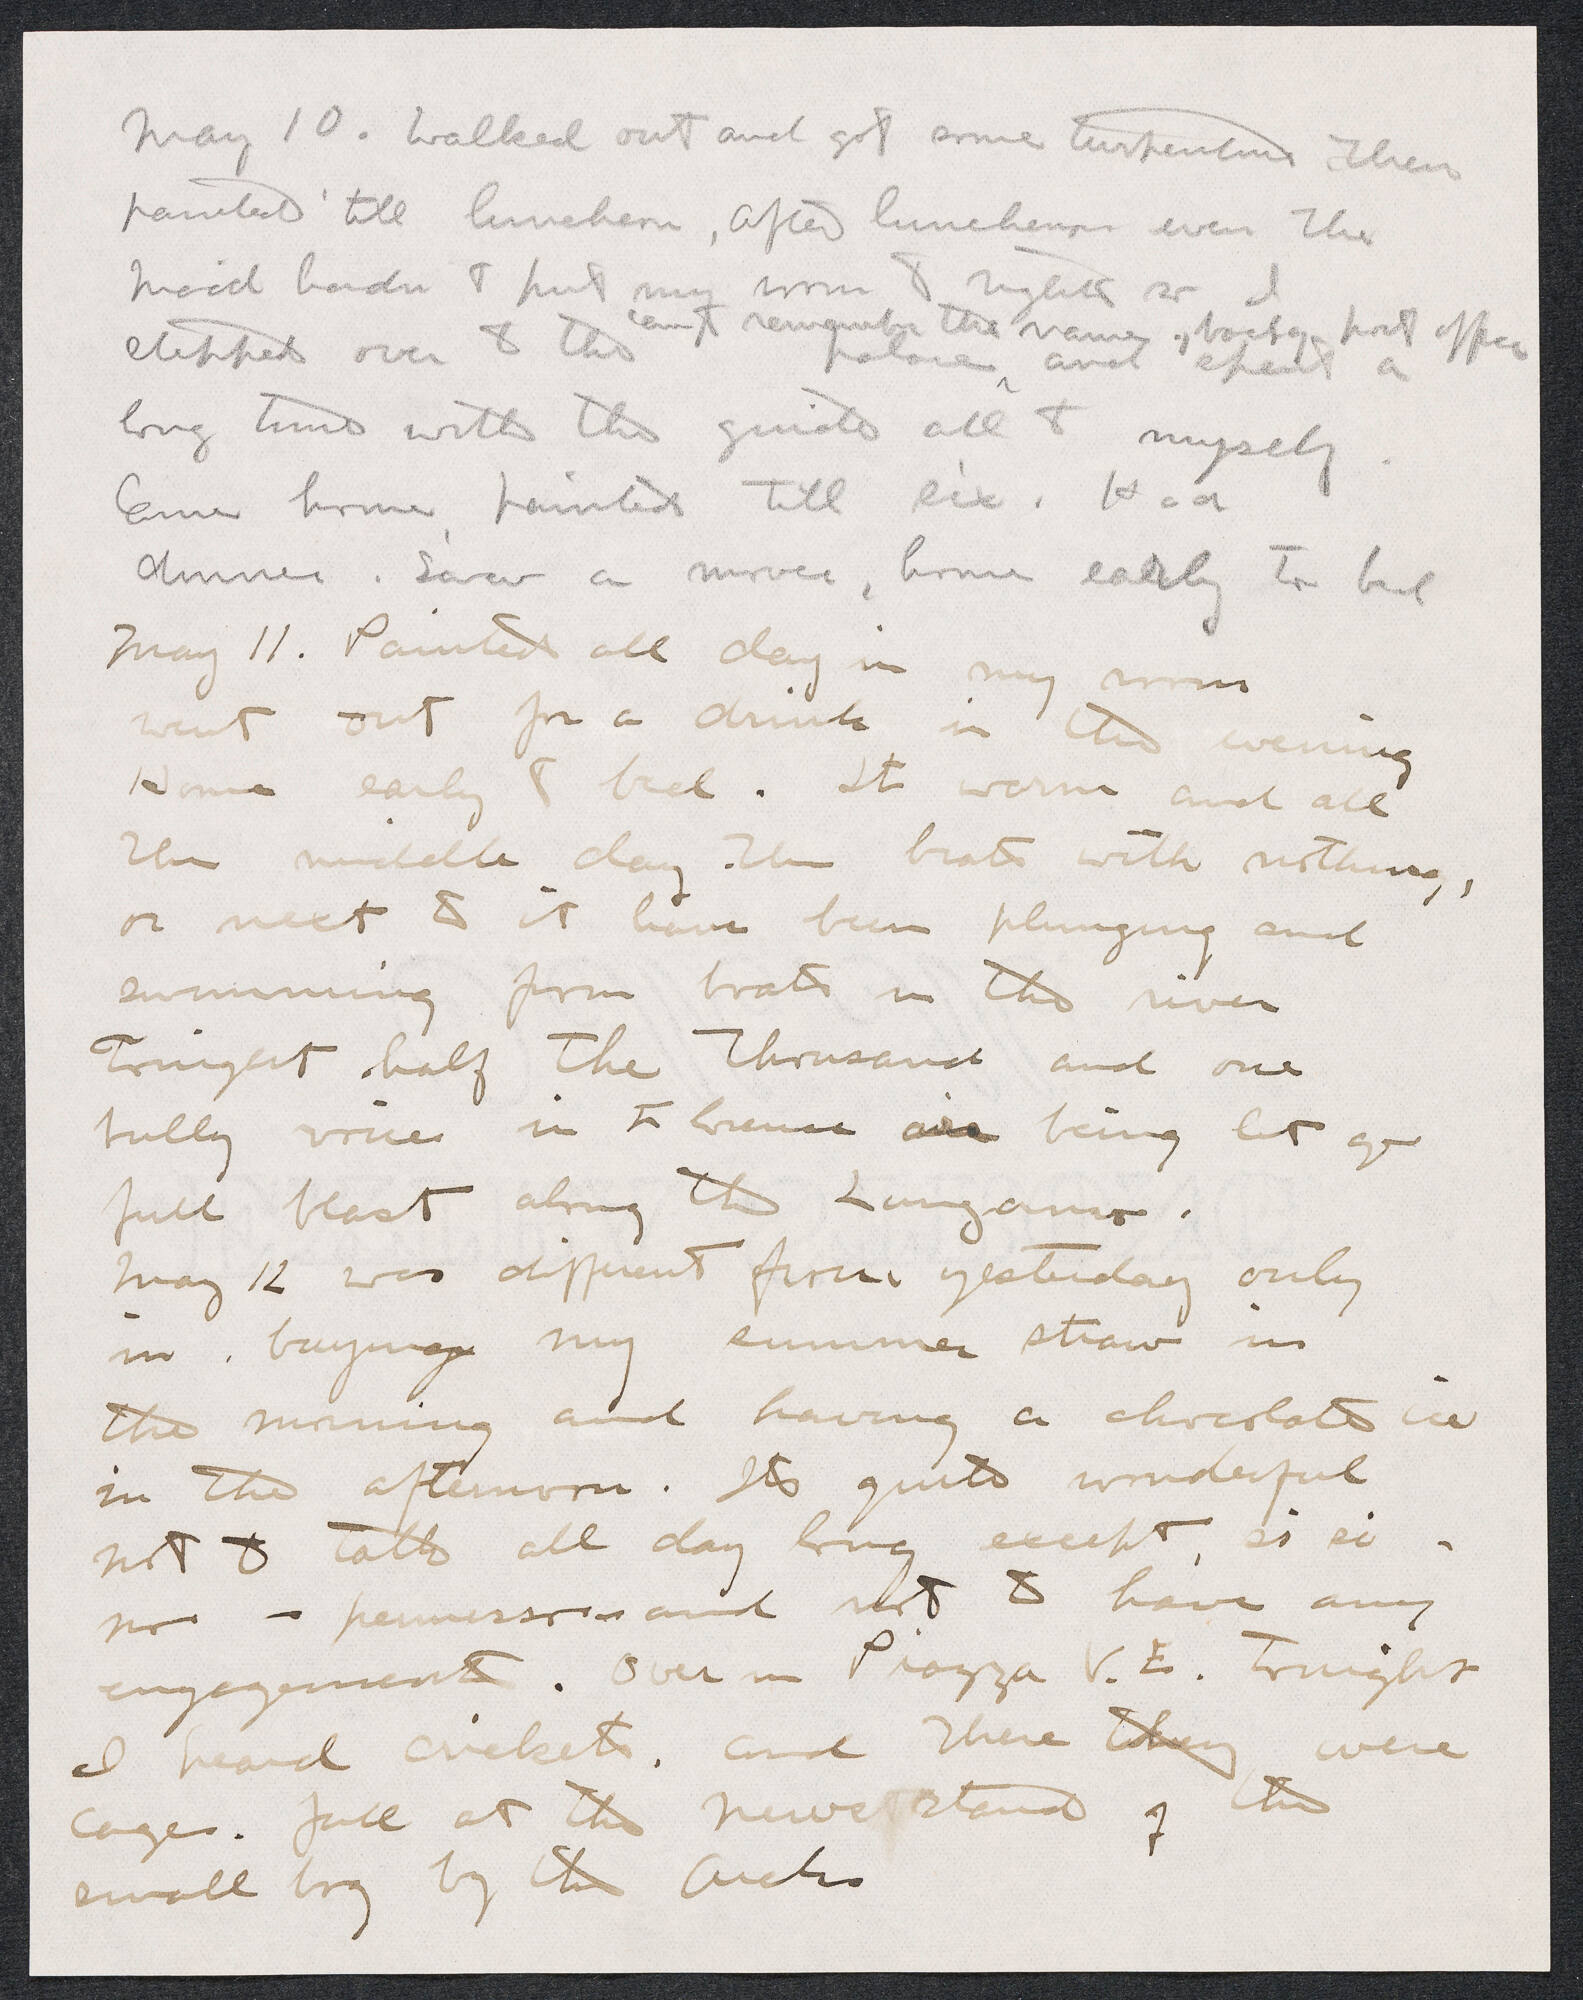 May 10. Walked out and got some turpentine then
painted till luncheon, after luncheon even the
maid hadn't put my room to rights so I
stepped over to the palace, and spent a
can't remember the name, back of post office
long time with the guide all to myself.
Came home, painted till six. Had
dinner. Saw a movie, home early to bed
May 11. Painted all day in my room
went out for a drink in the evening
Home early to bed. It warm and all
the middle day the boats with nothing,
or next to it have been plunging and
swimming from boats in the river
Tonight half the thousand and one
bully voices in Florence are being let go
full blast along the Lungarno.
May 12 was different from yesterday only
in buying my summer straw in
the morning and having a chocolate ice
in the afternoon. Its quite wonderful
not to talk all day long except, si si -
no - permesso - and not to have any
engagements. Over in Piazza V.E. Tonight
I heard crickets, and there they were
cages full at the news stand of the
small boy by the